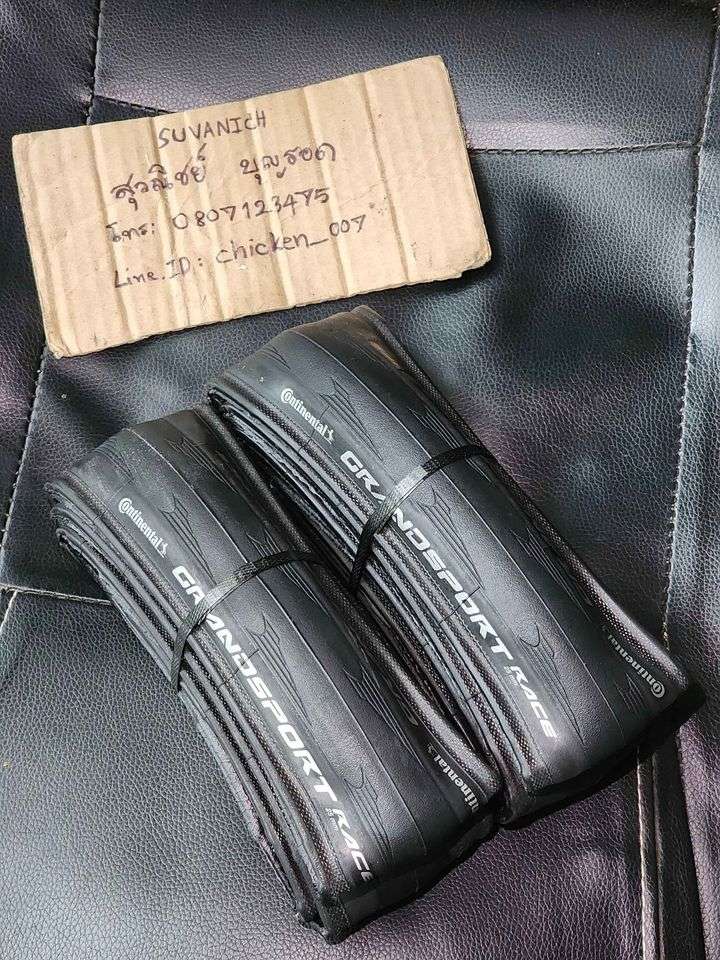 SUVANICH
สุวณิชย์ บุญรอด
โทร: 0807123475
Line.ID: chicken_007
Continental
GRANDSPORT RACE
Continental
Continental
GRANDSPORT RACE
Continental